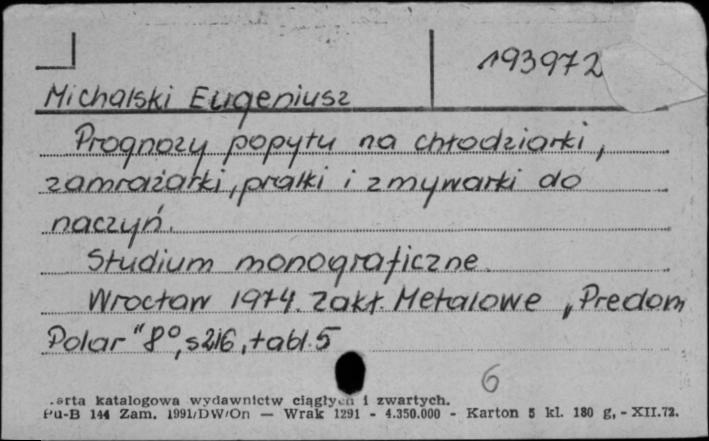 193972
Michalski Eugeniusz
Prognozy popytu na chłodziarki,
zamrażarki, pralki i zmywarki do
naczyń.
Studium monograficzne.
Wrocław 1974. Zakł. Metalowe „Predom
Polar" 8°, s 216, tabl. 5
6
.arta katalogowa wydawnictw ciągłych i zwartych.
Pu-B 144 Zam. 1991/DW/On — Wrak 1291 - 4.350.000 - Karton 5 kl. 180 g, - XII.72.